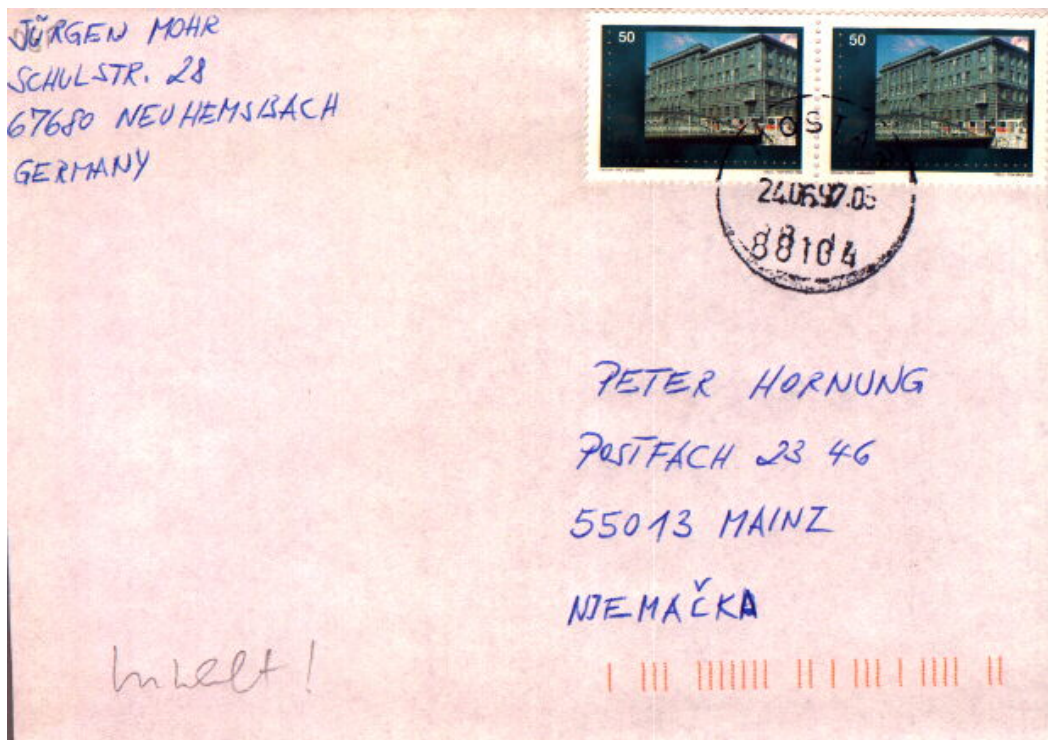 JÜRGEN MOHR
SCHULSTR. 28
67680 NEUHEMSBACH
GERMANY
50
50
24.06.97.
88104
PETER HORNUNG
POSTFACH 23 46
55013 MAINZ
NJEMAČKA
Inhalt!